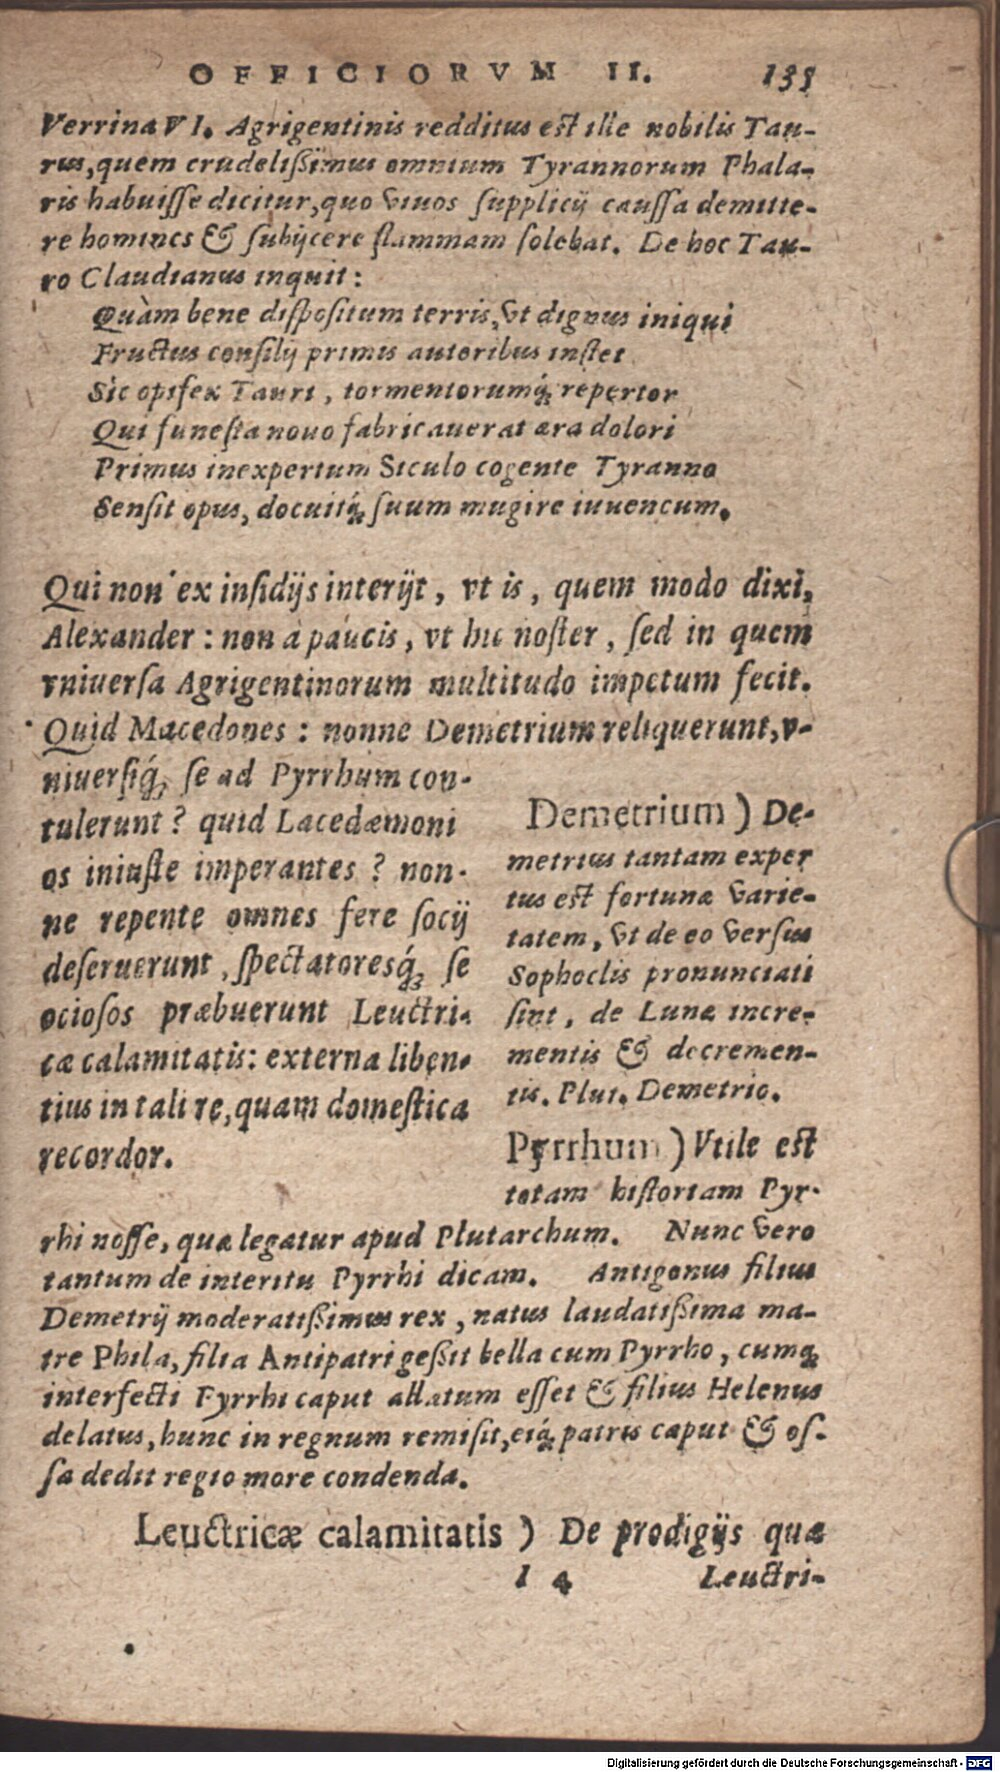 OFFICIORVM II. 135
Verrina VI. Agrigentinis redditus est ille nobilis Tau-
rus, quem crudelißimus omnium Tyrannorum Phala-
ris habuiſſe dicitur, quo viuos ſupplicij cauſſa demitte-
re homines & ſubijcere flammam ſolebat. De hoc Tau-
ro Claudianus inquit:
Quàm bene diſpoſitum terris, vt dignus iniqui
Fructus conſilij primis autoribus inſtet
Sic opifex Tauri, tormentorumq́; repertor
Qui funeſta nouo fabricauerat æra dolori
Primus inexpertum Siculo cogente Tyranno
Senſit opus, docuitq́; ſuum mugire iuuencum.
Qui non ex inſidijs interijt, vt is, quem modo dixi,
Alexander: non à paucis, vt hic noſter, ſed in quem
vniuerſa Agrigentinorum multitudo impetum fecit.
Quid Macedones: nonne Demetrium reliquerunt, v-
niuerſiq́; ſe ad Pyrrhum con-
tulerunt? quid Lacedæmoni
os iniuſte imperantes? non-
ne repente omnes fere ſocij
deſeruerunt, ſpectatoresq́; ſe
ocioſos præbuerunt Leuctri-
cæ calamitatis: externa liben-
tius in tali re, quam domeſtica
recordor.
Demetrium) De-
metrius tantam exper
tus eſt fortunæ varie-
tatem, vt de eo verſus
Sophoclis pronunciati
ſint, de Lunæ incre-
mentis & decremen-
tis. Plut. Demetrio.
Pyrrhum) Vtile eſt
totam hiſtoriam Pyr-
rhi noſſe, quæ legatur apud Plutarchum. Nunc vero
tantum de interitu Pyrrhi dicam. Antigonus filius
Demetrij moderatißimus rex, natus laudatißima ma-
tre Phila, filia Antipatri geßit bella cum Pyrrho, cumq;
interfecti Pyrrhi caput allatum eſſet & filius Helenus
delatus, hunc in regnum remiſit, eiq́; patris caput & oſ-
ſa dedit regio more condenda.
Leuctricæ calamitatis) De prodigijs quæ
I 4 Leuctri-
Digitalisierung gefördert durch die Deutsche Forschungsgemeinschaft - DFG